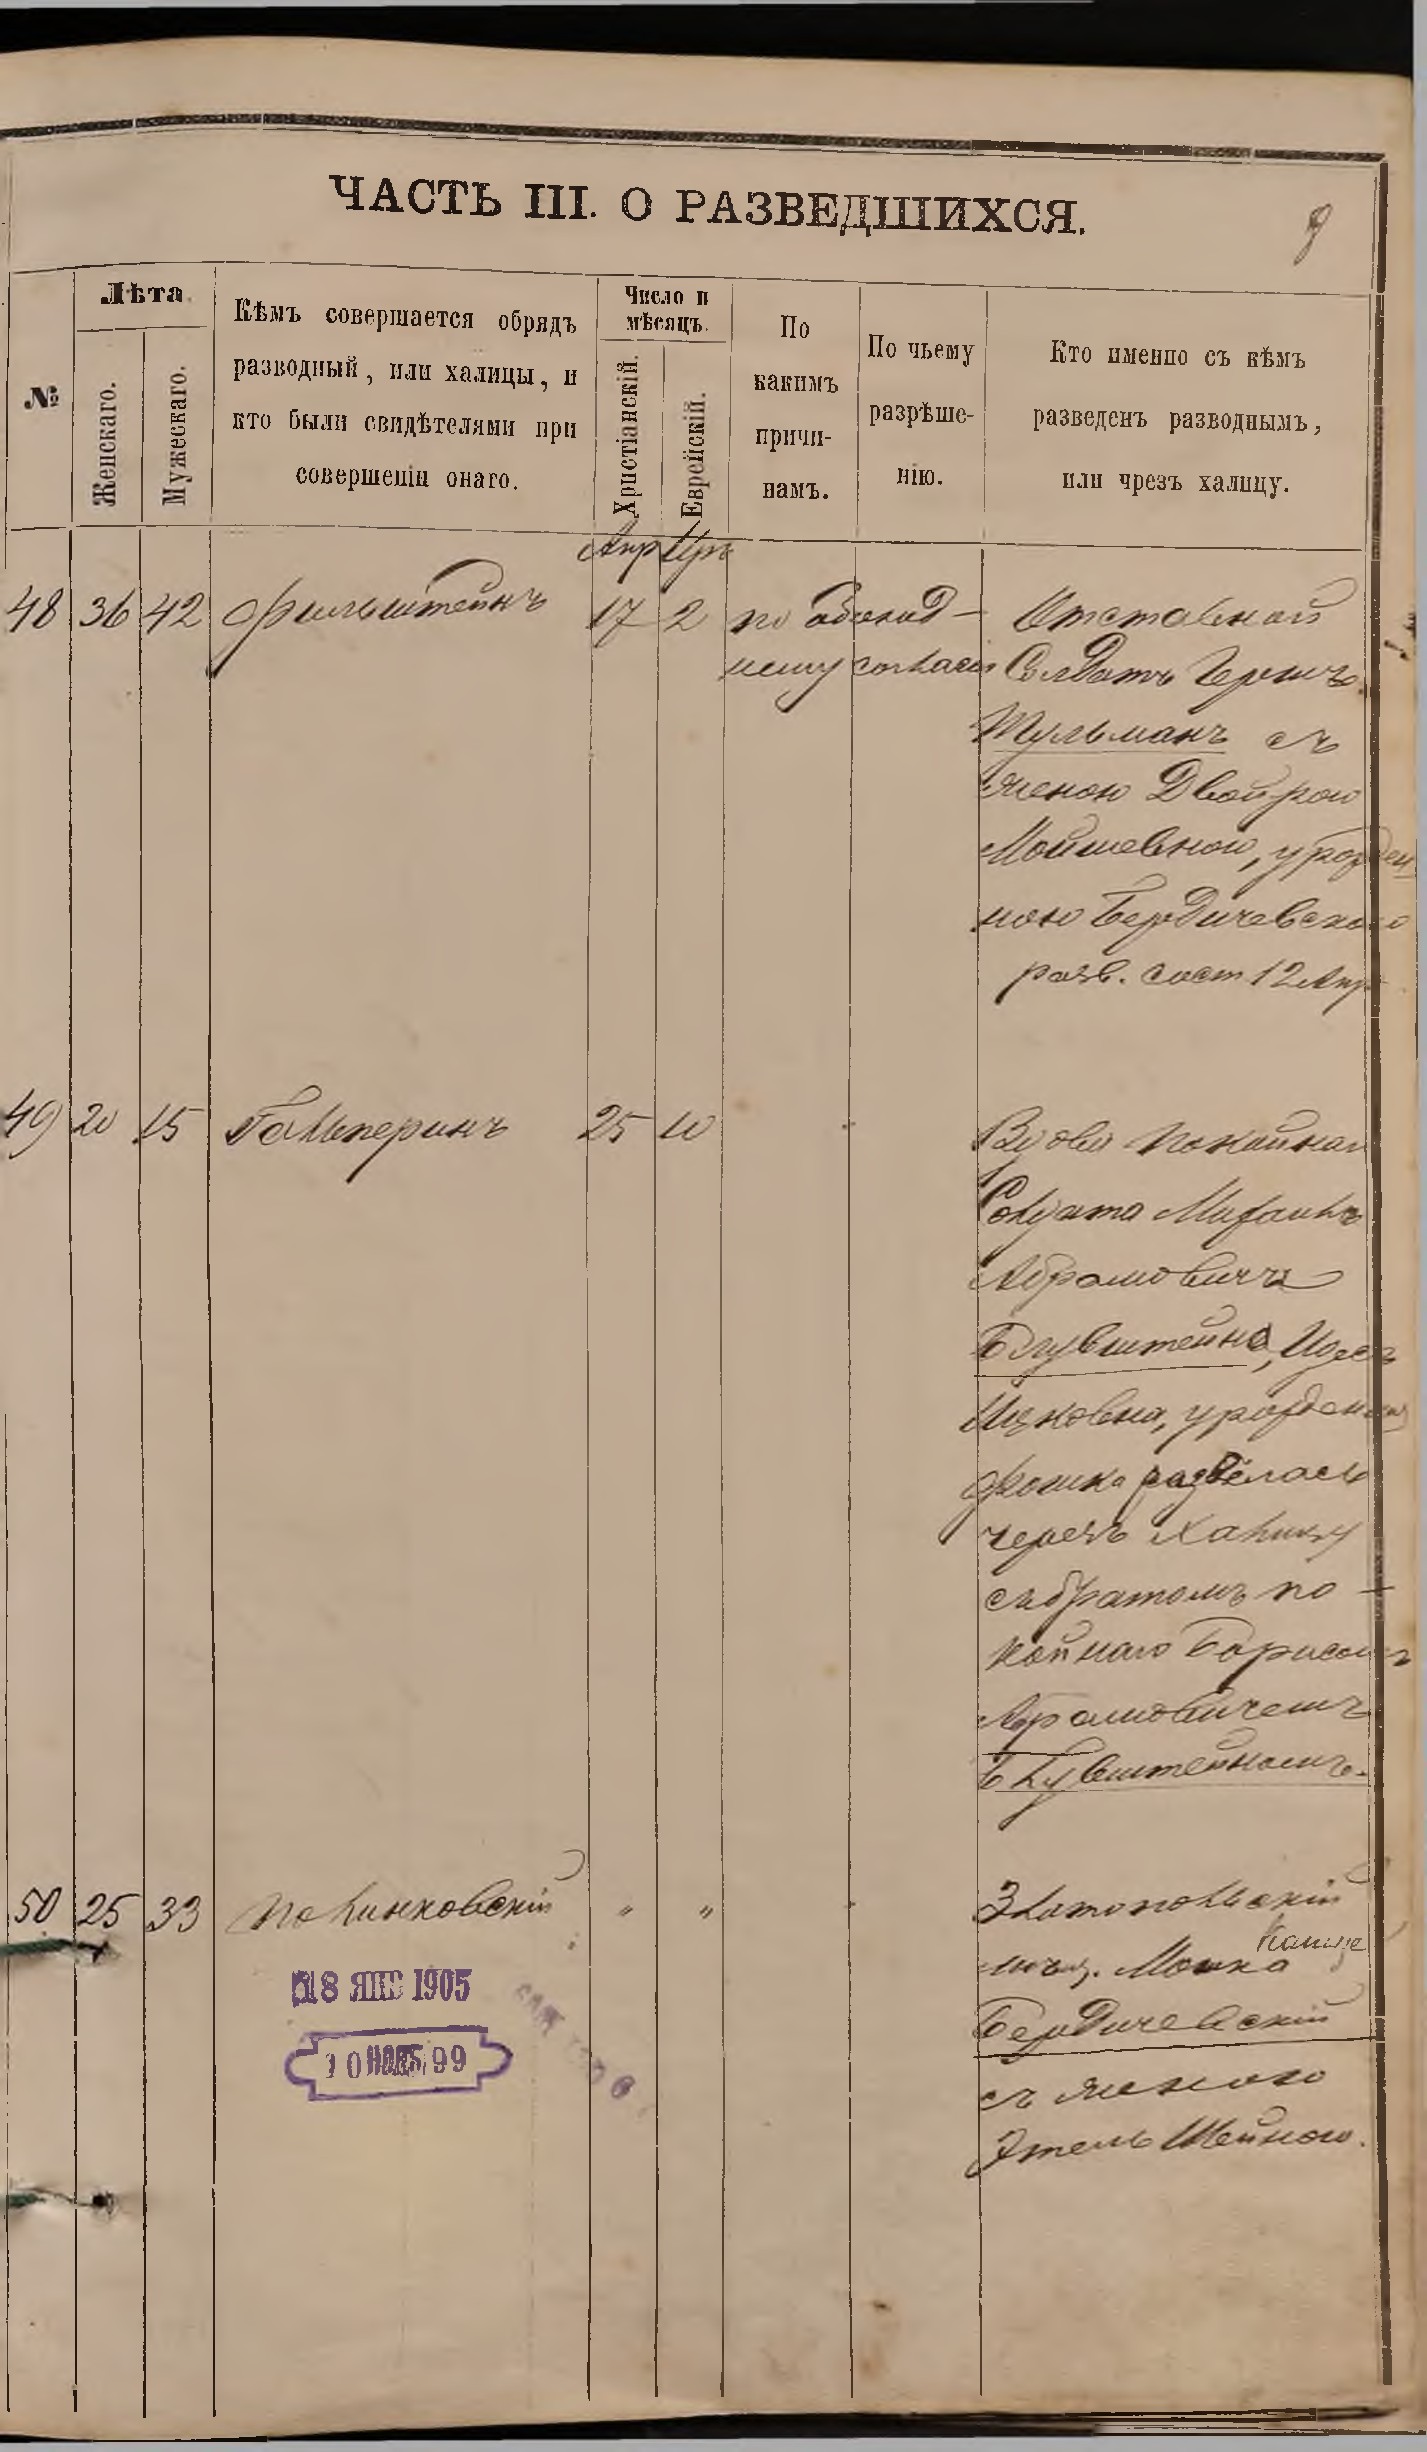 ЧАСТЬ III. О РАЗВЕДШИХСЯ.
9
№
Лѣта
Женскаго.
Мужескаго.
Кѣмъ совершается обрядъ
разводный, или халицы, и
кто были свидѣтелями при
совершеніи онаго.
Число и
мѣсяцъ.
Христіанскій.
Еврейскій.
По
какимъ
причи-
намъ.
По чьему
разрѣше-
нію.
Кто именно съ кѣмъ
разведенъ разводнымъ,
или чрезъ халицу.
Апр Ііръ
48 36 42 Фильштейнъ 17 2 по обоюд-
ному согласію
Отставной
Солдатъ Гершъ
Шульманъ съ
женою Двойрою
Мошковною, урожден
ною Бердичевскою
разв. сост 12 Апр
49 20 15 Гальперинъ 25 10 "
Вдова покойнаго
Солдата Михаилъ
Абрамовича
Блувштейна, Идесъ
Ицковна, урожденная
Фошка развѣлась
черезъ Халицу
съ братомъ по-
койнаго Борисомъ
Абрамовичемъ
Блувштейномъ.
50 25 33 Полинковскій " " "
Златопольскій
мѣщ. Мошка
Бердичевскій
съ женою
Этель Шейною.
18 ЯНВ 1905
10 НОЯБ 99